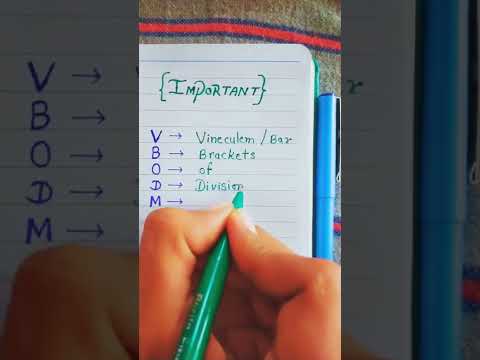 {IMPORTANT}
V → Vineculem / Bar
B → Brackets
O → of
D → Division
M →